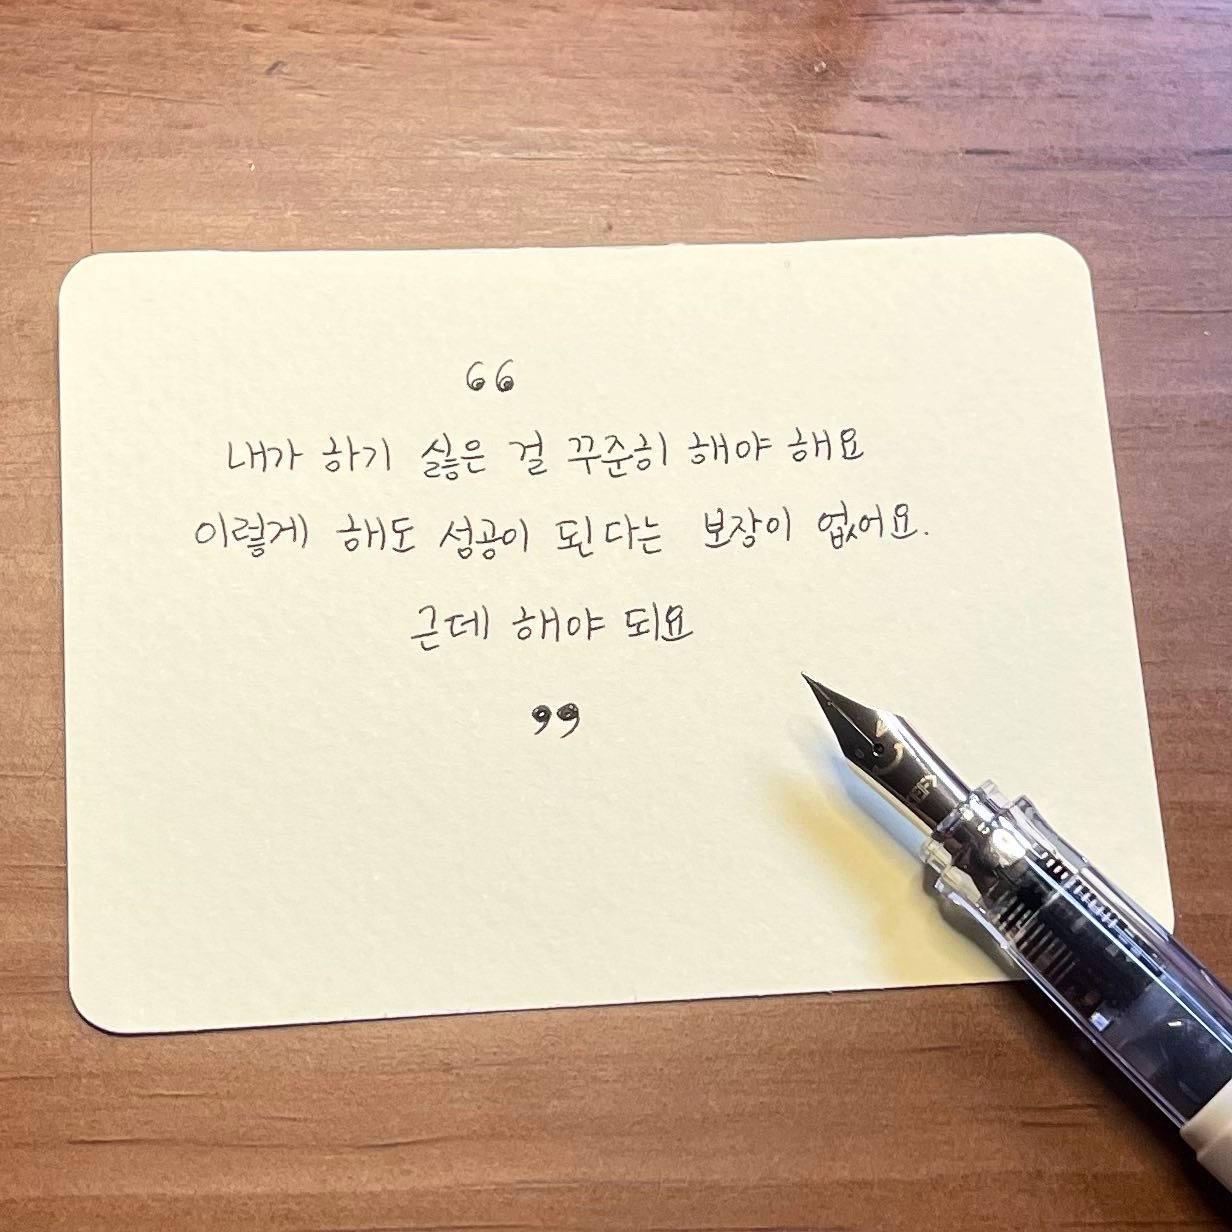 “
내가 하기 싫은 걸 꾸준히 해야 해요
이렇게 해도 성공이 된다는 보장이 없어요.
근데 해야 되요
”